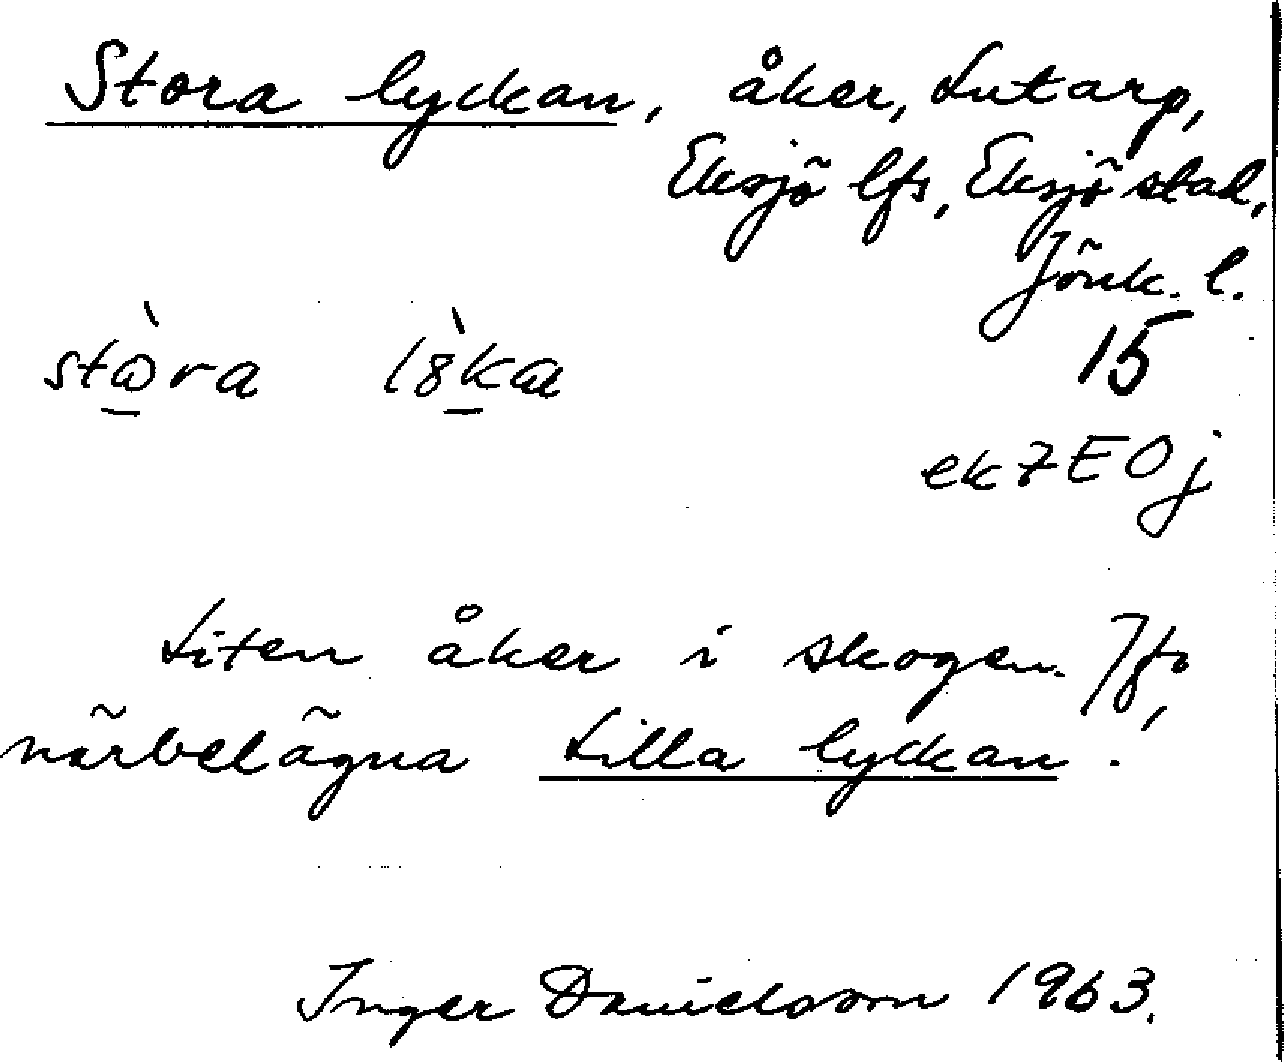 Stora lyckan, åker, Lutarp,
Eksjö lfs, Eksjö stad,
Jönk. l.
15
ek 7 E 0 j
Liten åker i skogen. Jfr
närbelägna Lilla lyckan.
Inger Danielsson 1963.